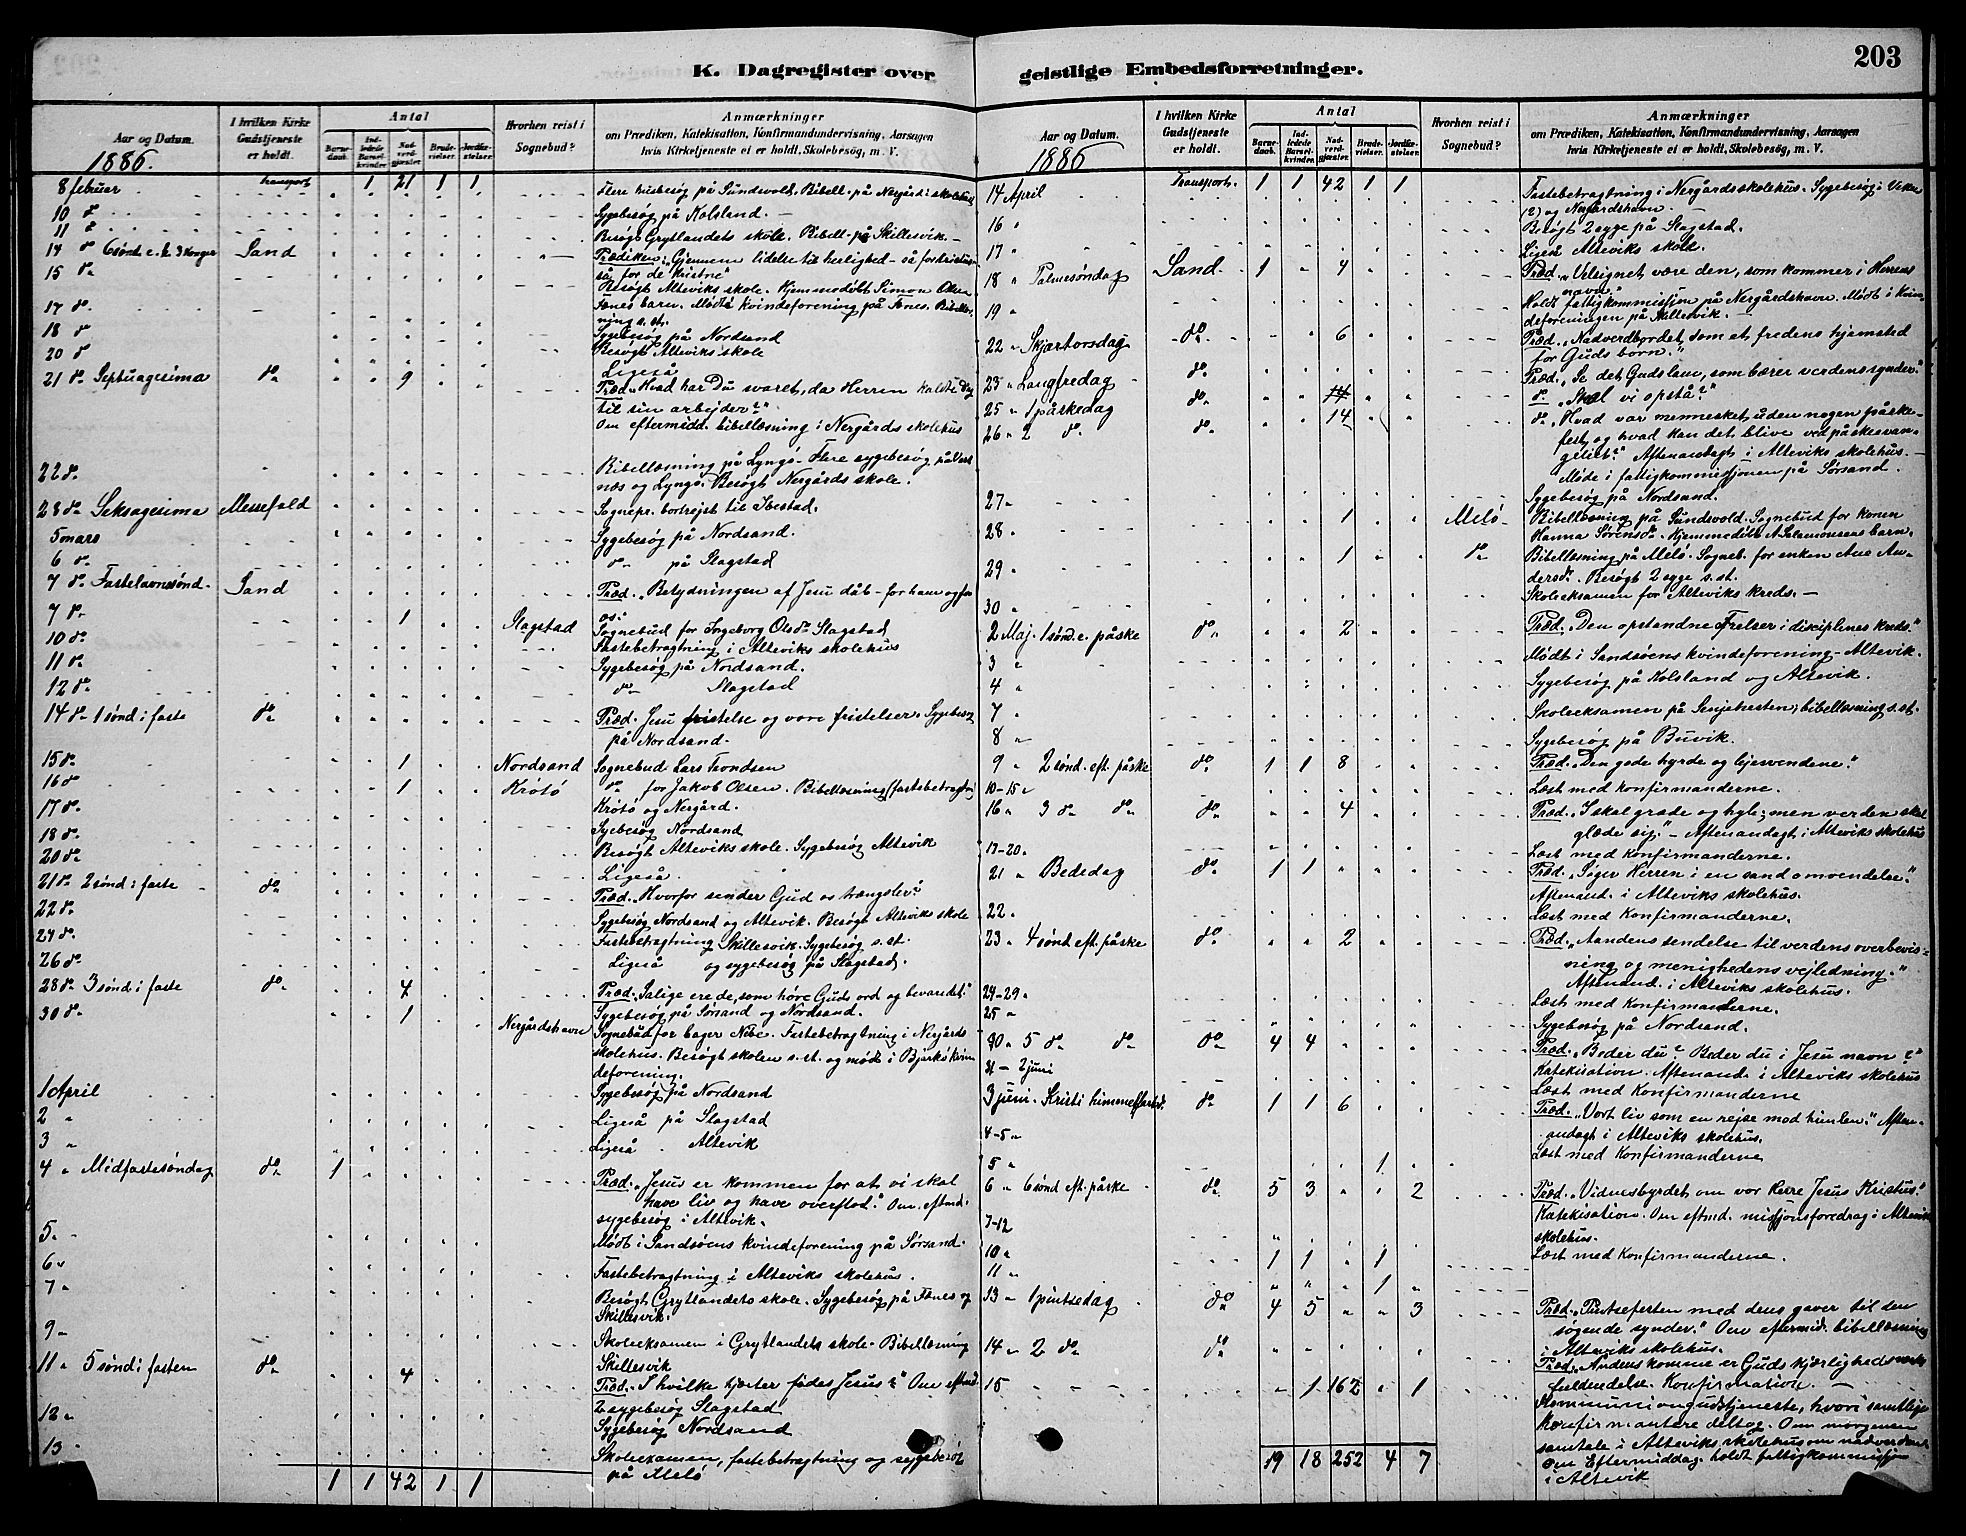 203
K. Dagregister over geistlige Embedsforretninger.
Aar og Datum.
I hvilken Kirke Gudstjeneste er holdt.
Antal
Barnedaab.
Indledede Barselkvinder.
Nadverdgjæster.
Brudevielser.
Jordfæstelser.
Hvorhen reist i Sognebud?
Anmærkninger
om Prædiken, Katekisation, Konfirmandundervisning, Aarsagen
hvis Kirketjeneste ei er holdt, Skolebesøg, m. V.
1886.
8 februar transport 1 21 1 1 Flere husbesøg på Sundsvold. Bibell. på Nergård skolehus
10 d° Sygebesøg på Kolsland.
11 d° Besøgt Grytlandets skole. Bibell. på Skillesvik.
14 d° 6 sønd. e. h. 3 Konger Sand Prædiken: "Gjennem lidelse til herlighed - så for Kristus
så for de kristne"
15 d° Besøgt Alteviks skole. Hjemmedøbt Simon Olsen
Fønes barn. Mødt i kvindeforening på Fønes. Bibellæs-
17 d° ning s. st.
18 d° Sygebesøg på Nordsand
20 d° Besøgt Alteviks skole
Ligeså
21 d° Septuagesima d° 9 Præd. "Hvad har Du svaret, da Herren kaldte dig
til sin arbejder?"
Om eftermidd. bibellæsning i Nergårds skolehus
22 d° Bibellæsning på Lyngø. Flere sygebesøg på
næs og Lyngø. Besøgt Nergårds skole.
28 d° Seksagesima Messefald Sognepr. bortrejst til Ibestad.
5 mars Sygebesøg på Nordsand.
6 d° d° på Slagstad
7 d° Fastelavnssønd. Sand Præd. "Betydningen af Jesu dåb - for ham og for
os."
7 d° 1 Slagstad Sognebud for Ingeborg Olsd. Slagstad
10 d° Fastebetragtning i Alteviks skolehus
11 d° Sygebesøg på Nordsand.
12 d° d° Slagstad
14 d° 1 sønd i faste d° Præd. Jesu fristelse og vore fristelser. Sygebesøg
på Nordsand.
15 d° 1 Nordsand Sognebud Lars Trondsen
16 d° 1 Krøtø d° for Jakob Olsen. Bibellæsning (fastebetragtn)
17 d° Krøtø og Nergård.
18 d° Sygebesøg Nordsand
20 d° Besøgt Alteviks skole. Sygebesøg Altevik
Ligeså.
21 d° 2 sønd i faste d° Præd. "Hvorfor sender Gud os trængsler?"
22 d° Sygebesøg Nordsand og Altevik. Besøgt Alteviks skole
24 d° Fastebetragtning Skillesvik. Sygebesøg s. st.
26 d° Ligeså og sygebesøg på Slagstad.
28 d° 3 sønd i faste d° 4 Præd. "Salige ere de, som høre Guds ord og bevare det."
Sygebesøg på Sørsand og Nordsand.
30 d° 1 Nergårdshavn Sognebud for bager Nebe. Fastebetragtning i Nergårds
skolehus. Besøgt skolen s. st. og møde i Bjarkø kvin-
deforening.
1 April Sygebesøg på Nordsand
2 " Ligeså på Slagstad
3 " Ligeså Altevik
4 " Midfastesøndag d° 1 Præd. "Jesus er kommen for at vi skal
have liv og have overflod." Om eftmd.
sygebesøg i Altevik.
5 " Mødt i Sandsøens kvindeforening på Sørsand.
6 " Fastebetragtning i Alteviks skolehus.
7 " Besøgt Grytlandets skole. Sygebesøg på Fønes og
Skillesvik.
9 " Skoleeksamen i Grytlandets skole. Bibellæsning
Skillesvik
11 " 5 sønd i fasten d° 4 Præd. "I hvilke hjerter fødes Jesus?" Om eftmd.
2 sygebesøg Slagstad
12 " Sygebesøg Nordsand
13 Skoleexamen, fastebetragtning og sygebesøg
på Melø
1 1 42 1 1
Aar og Datum.
I hvilken Kirke Gudstjeneste er holdt.
Antal
Barnedaab.
Indledede Barselkvinder.
Nadverdgjæster.
Brudevielser.
Jordfæstelser.
Hvorhen reist i Sognebud?
Anmærkninger
om Prædiken, Katekisation, Konfirmandundervisning, Aarsagen
hvis Kirketjeneste ei er holdt, Skolebesøg, m. V.
1886
14 April Transport 1 1 42 1 1 Fastebetragtning i Nergårds skolehus. Sygebesøg i
(2) og Nergårdshavn.
16 " Besøgt 2 syge på Slagstad.
17 " Ligeså Alteviks skole.
18 " Palmesøndag Sand 1 " 4 Præd. "Velsignet være den, som kommer i Herrens
navn."
19 " Holdt fattigkommissjon på Nergårdshavn. Mødt i kvin-
deforeningen på Skillesvik.
22 " Skjærtorsdag d° 6 Præd. "Nadverdbordet som et fredens hjemsted
for Guds børn."
23 " Langfredag d° Præd. "Se det Guds lam, som bærer verdens synder."
25 " 1 påskedag d° 14 d° "Skal vi opstå?"
26 " 2 d° d° 14 d° "Hvad var mennesket uden nogen påske-
fest, og hvad kan det blive ved påskeevan-
geliet?" Aftenandagt i Alteviks skolehus.
Møde i fattigkommissjonen på Sørsand.
27 " Sygebesøg på Nordsand.
28 " 1 Melø Bibellæsning på Sundsvold. Sognebud for konen
Hanna Sørensd. Hjemmedøbt A. Salamonsens barn.
29 " 1 d° Bibellæsning på Melø. Sogneb. for enken Ane An-
dersd. Besøgt 2 syge s. st.
30 " Skoleeksamen for Alteviks kreds.
2 Maj. 1 sønd. e. påske d° 2 Præd. "Den opstandne Frelser i disciplenes kreds."
3 " Mødt i Sandsøens kvindeforening - Altevik.
4 " Sygebesøg på Kolsland og Altevik.
7 " Skoleeksamen på Senjehesten; bibellæsning s. st.
8 " Sygebesøg på Buvik.
9 " 2 sønd. eft. påske d° 1 1 8 Præd. "Den gode hyrde og lejesvendene."
10-15 " Læst med konfirmanderne.
16 " 3 d° d° d° 4 Præd. "I skal græde og hyle; men verden skal
glæde sig." - Aftenandagt i Alteviks skolehus
17-20 " Læst med konfirmanderne.
21 " Bededag d° 1 1 Præd. "Søger Herren i en sand omvendelse."
Aftenand. i Alteviks skolehus.
22 " Læst med konfirmanderne.
23 " 4 sønd eft. påske d° 2 Præd. "Aandens sendelse til verdens overbevis-
ning og menighedens vejledning."
Aftenand. i Alteviks skolehus.
24-29 " Læst med konfirmanderne.
25 " Sygebesøg på Nordsand.
30 " 5 d° d° d° 4 4 Præd. "Beder du? Beder du i Jesu navn?"
Katekisation. Aftenand. i Alteviks skolehus
31 - 2 juni Læst med konfirmanderne
3 juni. Kristi himmelfartsd. d° 1 1 6 Præd. "Vort liv som en rejse mod himlen." Aften-
andagt i Alteviks skolehus.
4-5 " Læst med konfirmanderne
5 " 1
6 " 6 sønd eft. påske d° 5 3 " " 2 Præd. "Vidnesbyrdet om vor Herre Jesus Kristus."
Katekisation. Om eftmd. misjonsforedrag i Alteviks
skolehus.
7-12 Læst med konfirmanderne.
10 " 1 1 1
11 " 1
13 " 1 pintsedag d° 4 5 " " 3 Præd. "Pintsefesten med dens gaver til den
søgende synder." Om eftermid. bibellæsning
i Alteviks skolehus.
14 " 2 d° d° Præd. "Åndens komme er Guds kjærligheds
fuldendelse. Konfirmation.
15 1 162 " 1 Kommunionsgudstjeneste, hvori samtlige
konfirmantere deltog. Om morgenen
samtale i Alteviks skolehus om nadverden.
Om Eftermiddag. holdt fattigkommissjon
i Altevik
19 18 252 4 7